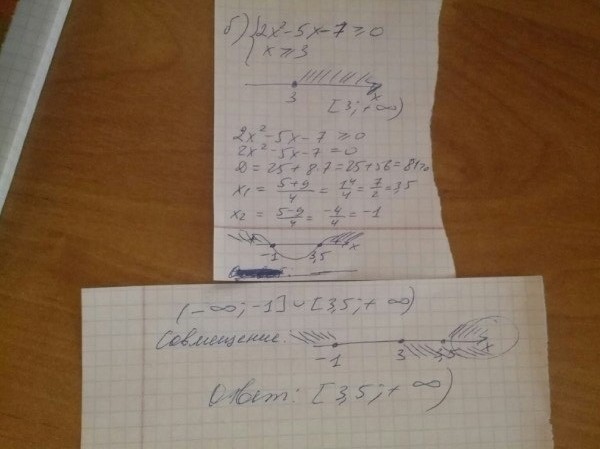 б) { 2x²-5x-7≥0
x≥3
3 x
[3;+∞)
2x²-5x-7≥0
2x²-5x-7=0
D=25+8·7=25+56=81>0
x₁=5+9/4=14/4=7/2=3,5
x₂=5-9/4=-4/4=-1
+ - + x
-1 3,5
(-∞;-1]∪[3,5;+∞)
Совмещение:
-1 3 3,5 x
Ответ: [3,5;+∞)